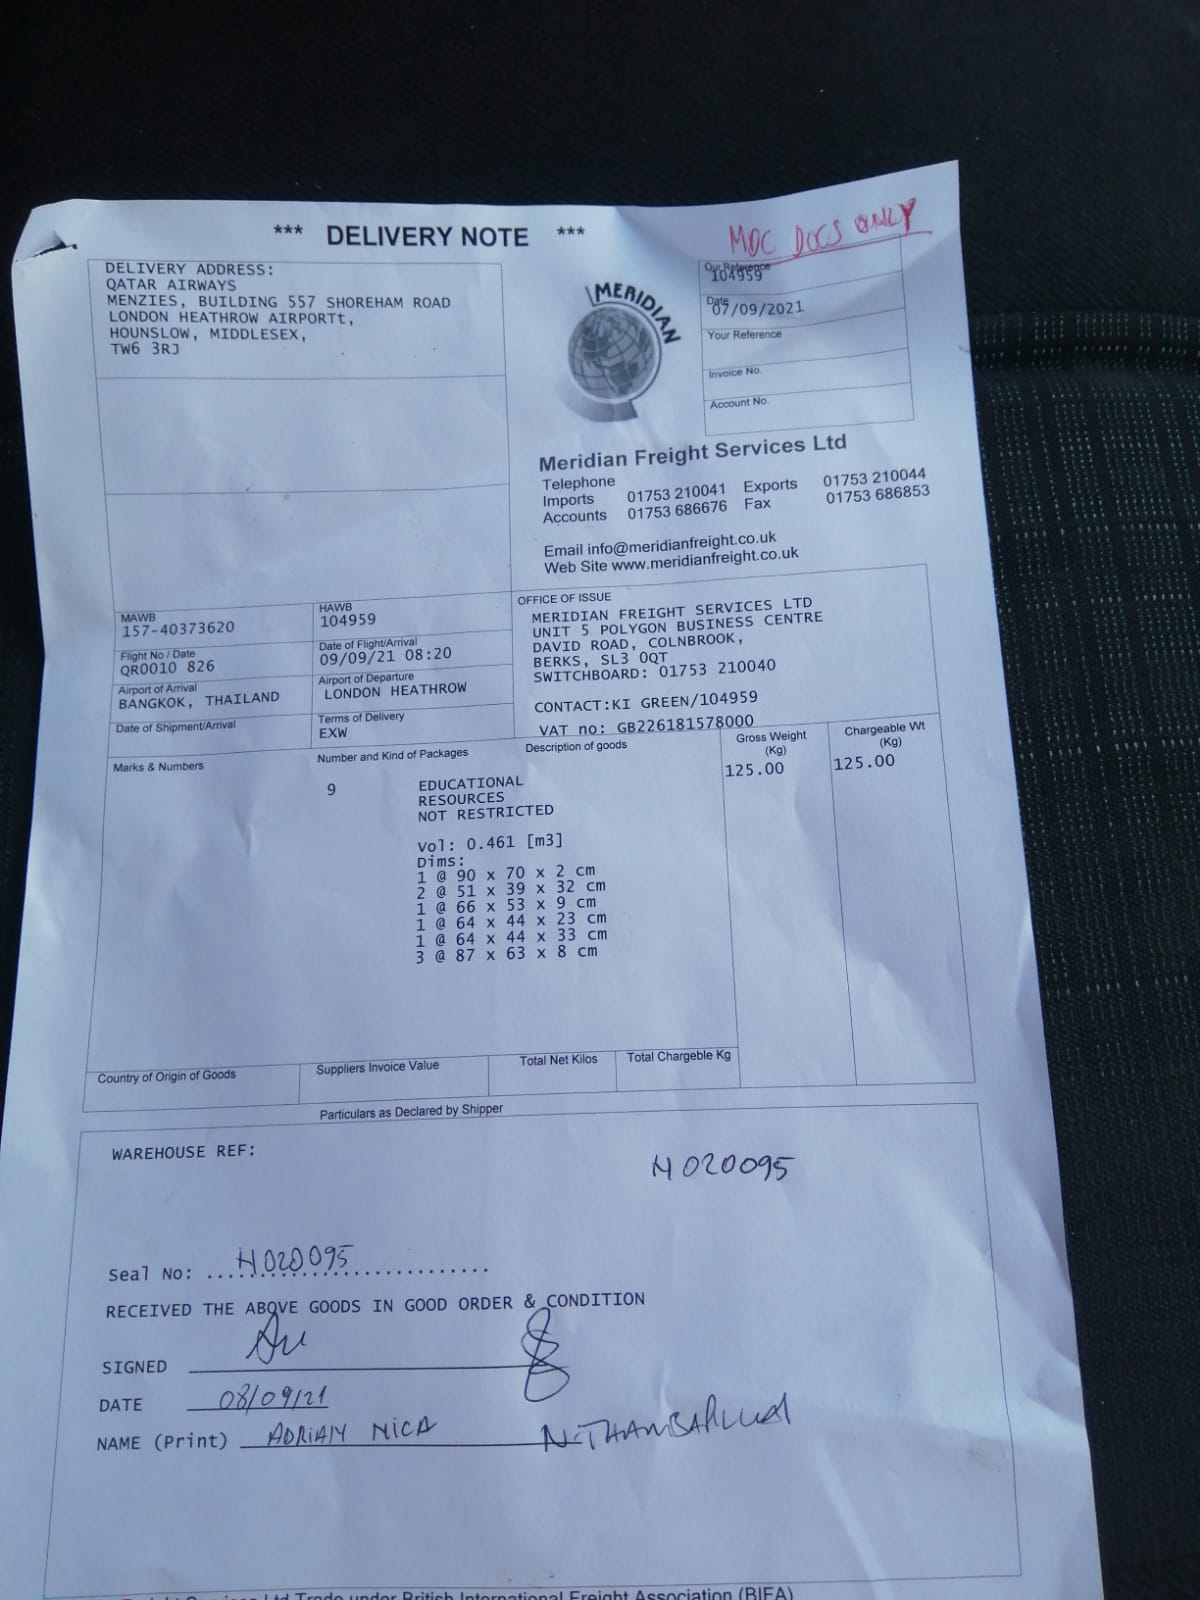 MDC DOCS ONLY
*** DELIVERY NOTE ***
DELIVERY ADDRESS:
QATAR AIRWAYS
MENZIES, BUILDING 557 SHOREHAM ROAD
LONDON HEATHROW AIRPORTt,
HOUNSLOW, MIDDLESEX,
TW6 3RJ
MERIDIAN
Our Reference
104959
Date
07/09/2021
Your Reference
Invoice No.
Account No.
Meridian Freight Services Ltd
Telephone
Imports 01753 210041 Exports 01753 210044
Accounts 01753 686676 Fax 01753 686853
Email info@meridianfreight.co.uk
Web Site www.meridianfreight.co.uk
MAWB
157-40373620
HAWB
104959
Flight No / Date
QR0010 826
Date of Flight/Arrival
09/09/21 08:20
Airport of Arrival
BANGKOK, THAILAND
Airport of Departure
LONDON HEATHROW
Date of Shipment/Arrival
Terms of Delivery
EXW
OFFICE OF ISSUE
MERIDIAN FREIGHT SERVICES LTD
UNIT 5 POLYGON BUSINESS CENTRE
DAVID ROAD, COLNBROOK,
BERKS, SL3 0QT
SWITCHBOARD: 01753 210040
CONTACT:KI GREEN/104959
VAT no: GB226181578000
Marks & Numbers
Number and Kind of Packages
Description of goods
Gross Weight
(Kg)
Chargeable Wt
(Kg)
9
EDUCATIONAL
RESOURCES
NOT RESTRICTED
125.00
125.00
Vol: 0.461 [m3]
Dims:
1 @ 90 x 70 x 2 cm
2 @ 51 x 39 x 32 cm
1 @ 66 x 53 x 9 cm
1 @ 64 x 44 x 23 cm
1 @ 64 x 44 x 33 cm
3 @ 87 x 63 x 8 cm
Country of Origin of Goods
Suppliers Invoice Value
Total Net Kilos
Total Chargeble Kg
Particulars as Declared by Shipper
WAREHOUSE REF:
H020095
Seal No: H020095
RECEIVED THE ABOVE GOODS IN GOOD ORDER & CONDITION
SIGNED
DATE 08/09/21
NAME (Print) ADRIAN NICA
Ltd Trade under British International Freight Association (BIFA)